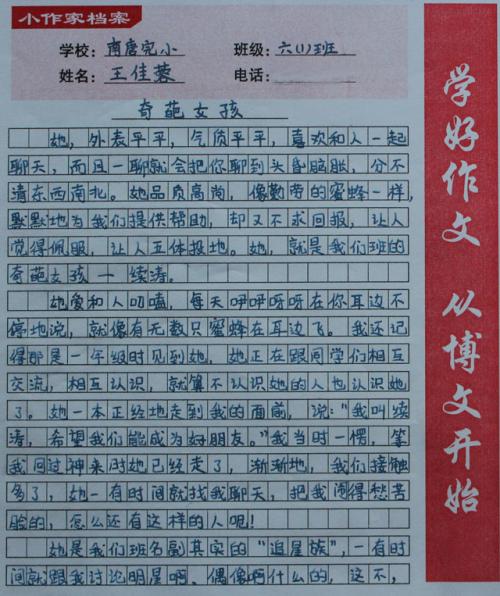 小作家档案
学校：南唐完小 班级：六(1)班
姓名：王佳蓉 电话：
奇葩女孩
她，外表平平，气质平平，喜欢和人一起
聊天，而且一聊就会把你聊到头昏脑胀，分不
清东西南北。她品质高尚，像勤带的蜜蜂一样，
默默地为我们提供帮助，却又不求回报，让人
觉得佩服，让人五体投地。她，就是我们班的
奇葩女孩—续涛。
她爱和人叨嗑，每天咿咿呀呀在你耳边不
停地说，就像有无数只蜜蜂在耳边飞。我还记
得那是一年级时见到她，她正在跟同学们相互
交流，相互认识，就算不认识她的人也认识她
了。她一本正经地走到我的面前，说："我叫续
涛，希望我们能成为好朋友。"我当时一愣，等
我回过神来时她已经走了，渐渐地，我们接触
多了，她一有时间就找我聊天，把我闹得愁苦
脸的，怎么还有这样的人呢！
她是我们班名副其实的"追星族"，一有时
间就跟我讨论明星啊、偶像啊什么的，这不，
学好作文 从博文开始